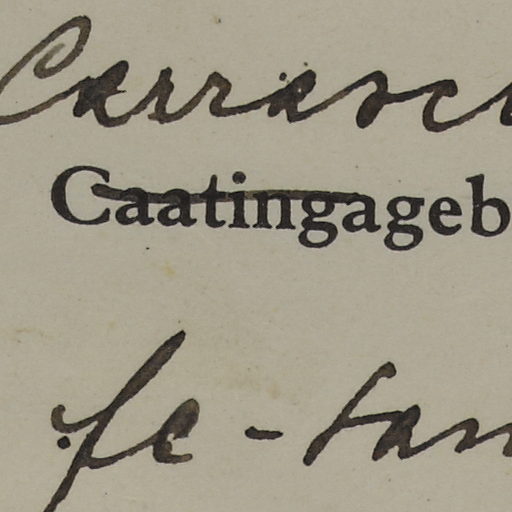 Carrasc
Caatingageb
fe-san